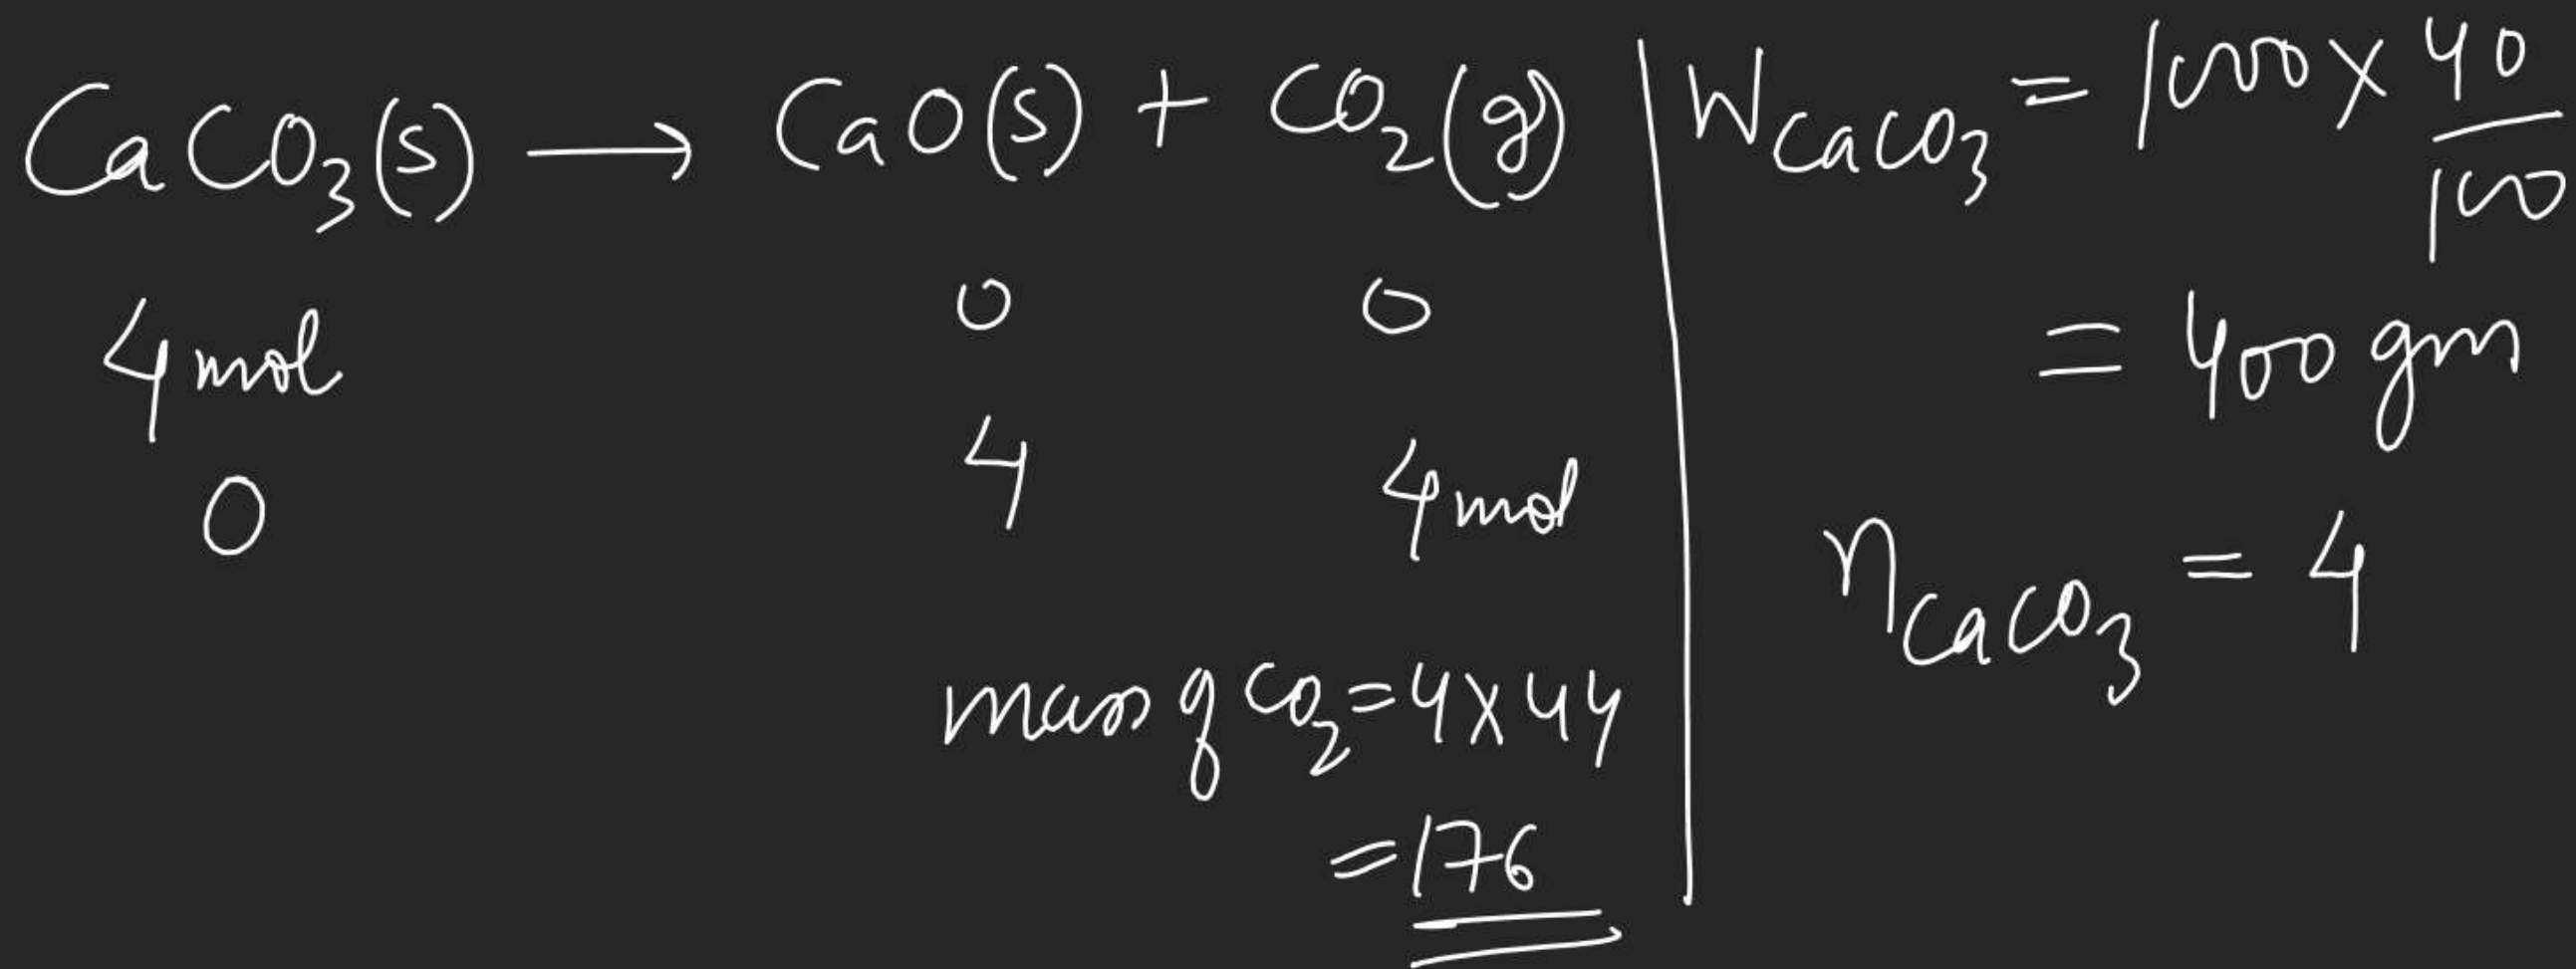 CaCO₃(s) ⟶ CaO(s) + CO₂(g)
4mol 0 0
0 4 4mol
mass of CO₂ = 4 × 44
= 176
W_CaCO₃ = 1000 × 40/100
= 400 gm
n_CaCO₃ = 4